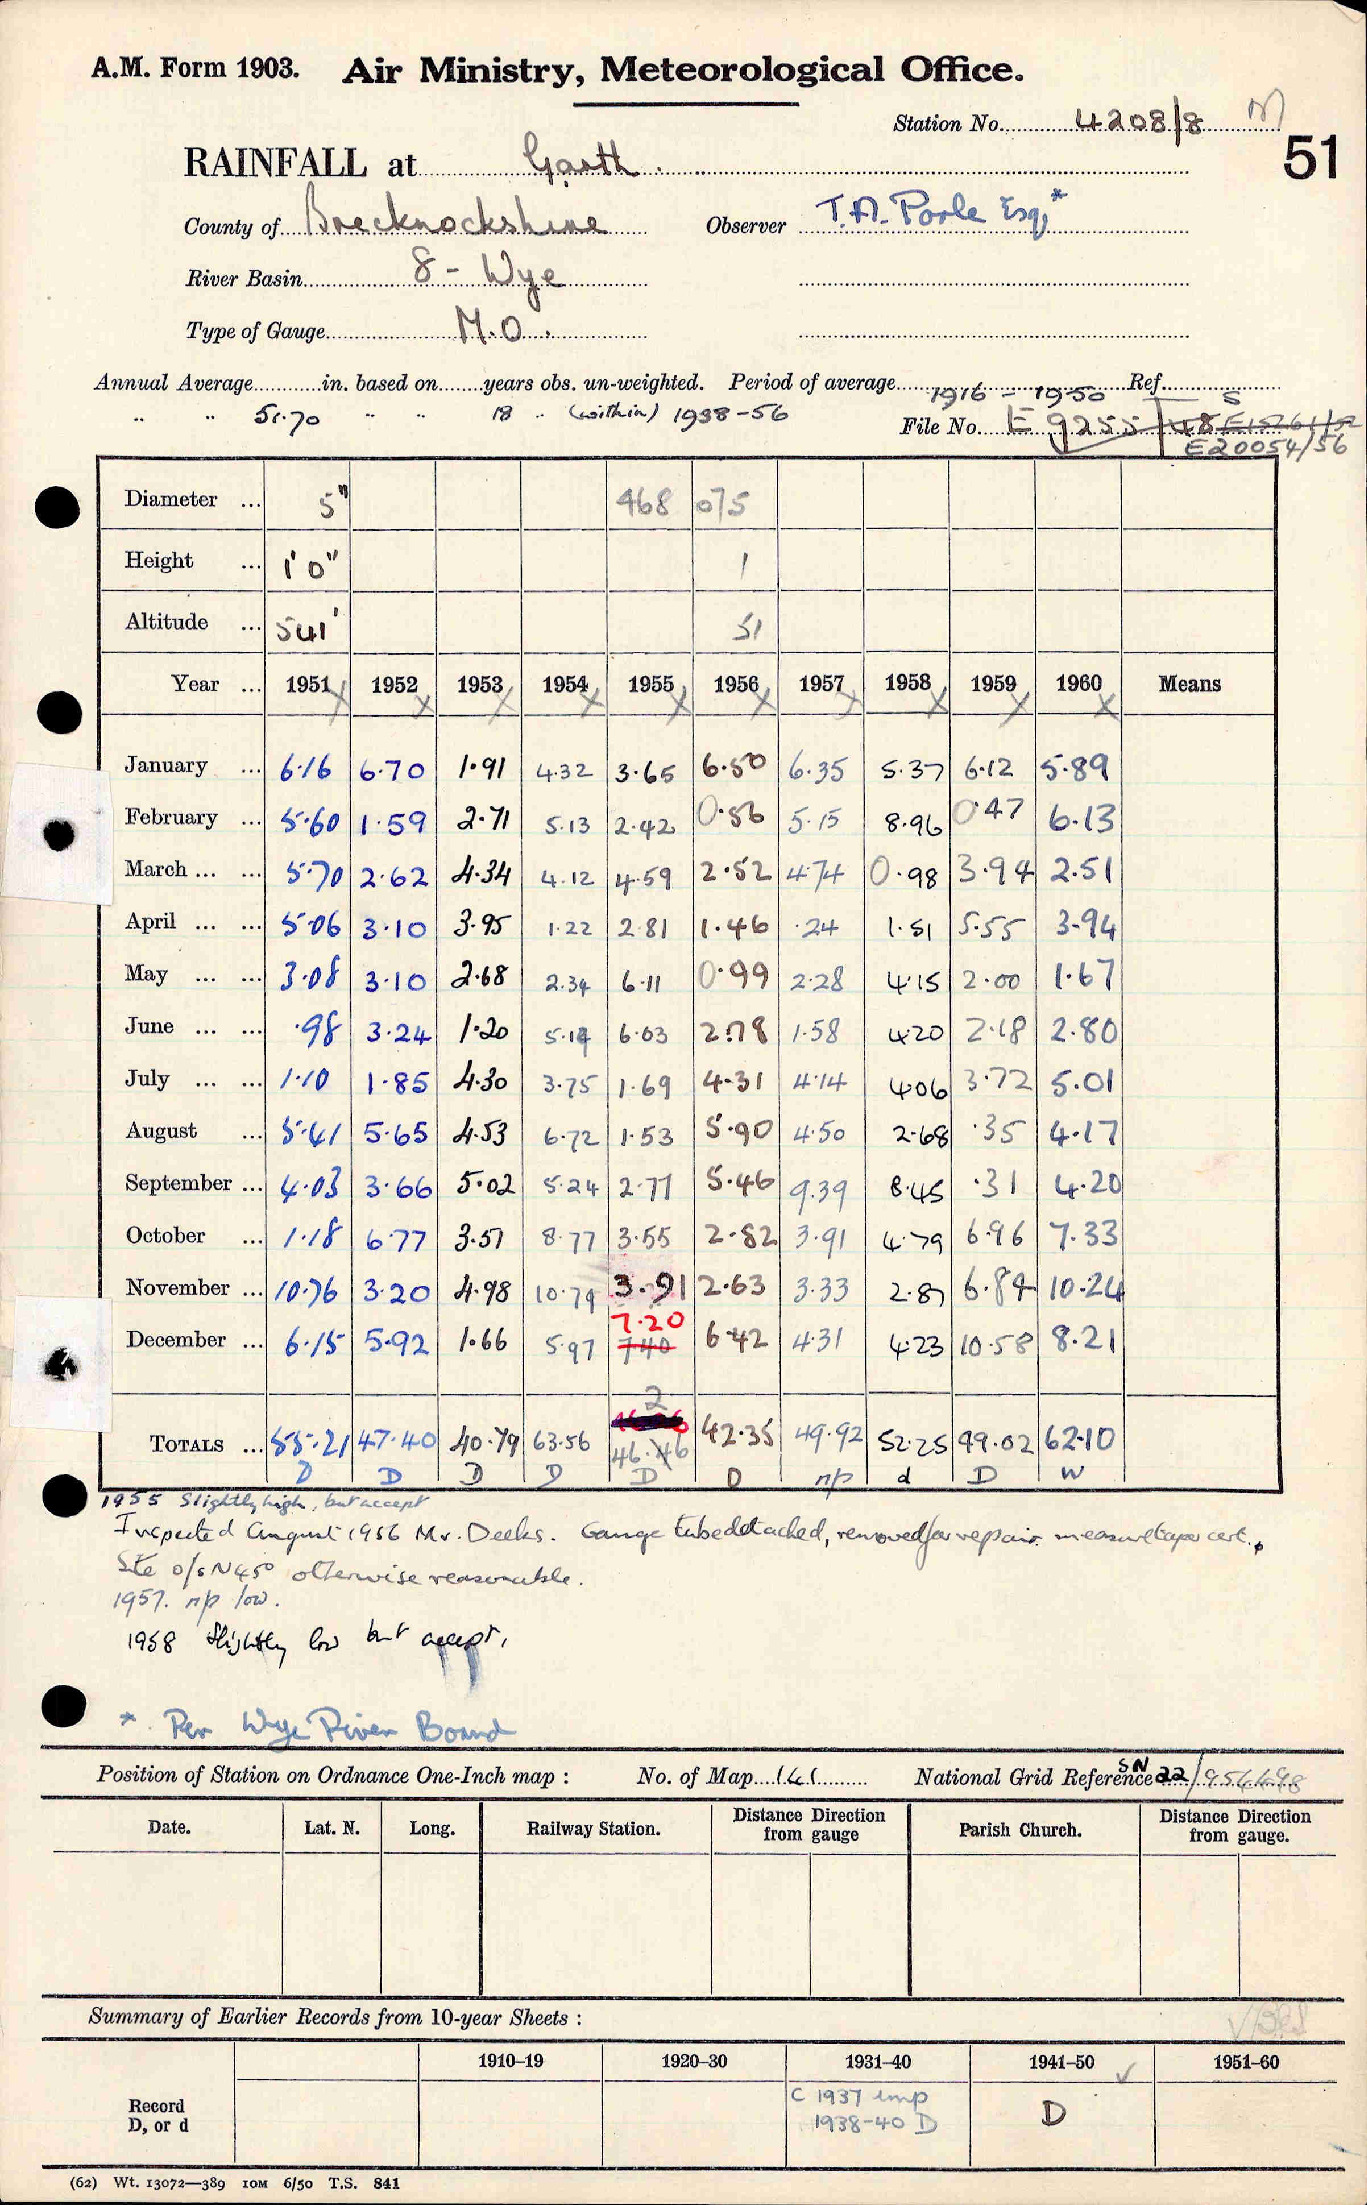 A.M. Form 1903. Air Ministry, Meteorological Office.
Station No. 4208/8 M
51
RAINFALL at Garth.
County of Brecknockshire Observer T.A. Poole Esq.*
River Basin 8 - Wye
Type of Gauge M.O.
Annual Average in. based on years obs. un-weighted. Period of average 1916 - 1950 Ref. S
" " 51.70 " " 18 " (within) 1938-56 File No. E 9255/48
E20054/56
Diameter ... 5" 468 075
Height ... 1' 0" 1
Altitude ... 541' 51
Year ... 1951 1952 1953 1954 1955 1956 1957 1958 1959 1960 Means
X X X X X X X X X X
January ... 6.16 6.70 1.91 4.32 3.65 6.50 6.35 5.37 6.12 5.89
February ... 5.60 1.59 2.71 5.13 2.42 0.56 5.15 8.96 0.47 6.13
March ... ... 5.70 2.62 4.34 4.12 4.59 2.52 4.74 0.98 3.94 2.51
April ... ... 5.06 3.10 3.95 1.22 2.81 1.46 .24 1.51 5.55 3.94
May ... ... 3.08 3.10 2.68 2.34 6.11 0.99 2.28 4.15 2.00 1.67
June ... ... .98 3.24 1.20 5.19 6.03 2.78 1.58 4.20 2.18 2.80
July ... ... 1.10 1.85 4.30 3.75 1.69 4.31 4.14 4.06 3.72 5.01
August ... 5.41 5.65 4.53 6.72 1.53 5.90 4.50 2.68 .35 4.17
September ... 4.03 3.66 5.02 5.24 2.77 5.46 9.39 8.45 .31 4.20
October ... 1.18 6.77 3.51 8.77 3.55 2.82 3.91 4.79 6.96 7.33
November ... 10.76 3.20 4.98 10.79 3.91 2.63 3.33 2.87 6.84 10.24
7.20
December ... 6.15 5.92 1.66 5.97 7.40 6.42 4.31 4.23 10.58 8.21
2
TOTALS ... 55.21 47.40 40.79 63.56 46.46 42.35 49.92 52.25 49.02 62.10
D D D D D D n/p d D W
1955 Slightly high, but accept
Inspected August 1956 Mr. Deeks. Gauge tube detached, removed for repair. measure tape cert.
Site o/s N45° otherwise reasonable.
1957. n/p low.
1958 slightly low but accept.
* Per Wye River Board
Position of Station on Ordnance One-Inch map : No. of Map 141 National Grid Reference SN 22/954498
Date. Lat. N. Long. Railway Station. Distance Direction from gauge Parish Church. Distance Direction from gauge.
Summary of Earlier Records from 10-year Sheets :
1910–19 1920–30 1931–40 1941–50 ✓ 1951–60
Record D, or d C 1937 imp
1938-40 D D
(62) Wt. 13072—389 10M 6/50 T.S. 841